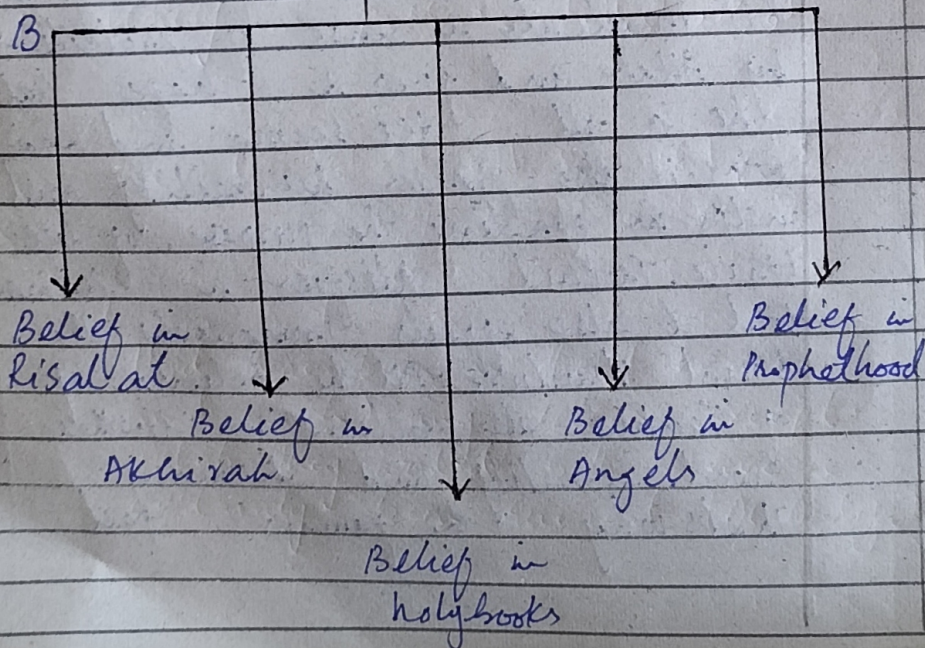 B
Belief in
Risalat
Belief in
Akhirah
Belief in
holybooks
Belief in
Angels
Belief in
Prophethood